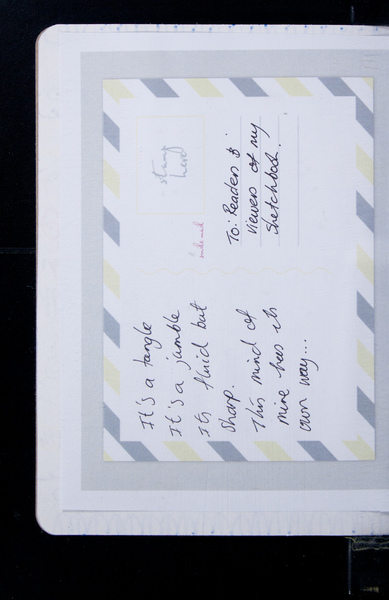 It's a tangle
It's a jumble
It's fluid but
sharp.
This mind of
mine has its
own way...
stamp
here
To: Readers &
viewers of my
sketchbook.